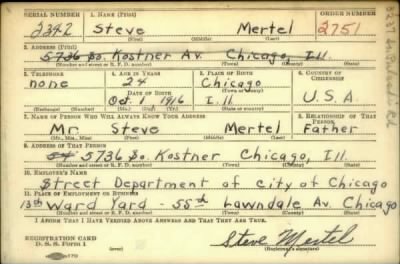 SERIAL NUMBER 1. NAME (Print) ORDER NUMBER
2342 Steve Mertel 2751
(First) (Middle) (Last)
2. ADDRESS (Print)
5736 So. Kostner Av. Chicago, Ill.
(Number and street or R. F. D. number) (Town) (County) (State)
3. TELEPHONE 4. AGE IN YEARS 5. PLACE OF BIRTH 6. COUNTRY OF CITIZENSHIP
none 24 Chicago
DATE OF BIRTH
Oct. 1 1916 Ill. U.S.A.
(Exchange) (Number) (Mo.) (Day) (Yr.) (State or country)
7. NAME OF PERSON WHO WILL ALWAYS KNOW YOUR ADDRESS 8. RELATIONSHIP OF THAT PERSON
Mr. Steve Mertel Father
(Mr., Mrs., Miss) (First) (Middle) (Last)
9. ADDRESS OF THAT PERSON
5736 So. Kostner Chicago, Ill
(Number and street or R. F. D. number) (Town) (County) (State)
10. EMPLOYER'S NAME
Street Department of City of Chicago
11. PLACE OF EMPLOYMENT OR BUSINESS
13th Ward Yard - 55th Lawndale Av. Chicago
(Number and street or R. F. D. number) (Town) (County) (State)
I AFFIRM THAT I HAVE VERIFIED ABOVE ANSWERS AND THAT THEY ARE TRUE.
REGISTRATION CARD
D. S. S. Form 1
Steve Mertel
(Registrant's signature)